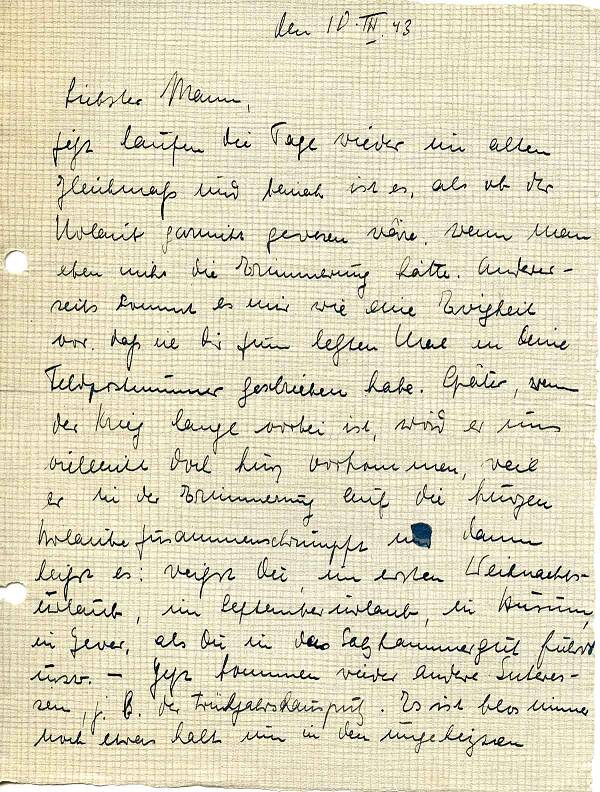 den 10.III.43
Liebster Mann,
jetzt laufen die Tage wieder im alten
Gleichmaß und beinah ist es, als ob der
Urlaub garnicht gewesen wäre, wenn man
eben nicht die Erinnerung hätte. Anderer-
seits kommt es mir wie eine Ewigkeit
vor, daß ich Dir zum letzten Mal an Deine
Feldpostnummer geschrieben habe. Später, wenn
der Krieg lange vorbei ist, wird er uns
vielleicht doch kurz vorkommen, weil
er in der Erinnerung auf die kurzen
Urlaube zusammenschrumpft und dann
heißt es: weißt Du, im ersten Weihnachts-
urlaub, im Septemberurlaub, in Husum,
in Jever, als Du in das Salzkammergut fuhrst
usw. – Jetzt kommen wieder andere Interes-
sen, z. B. der Frühjahrshausputz. Es ist blos immer
noch etwas kalt um in den ungeheizten